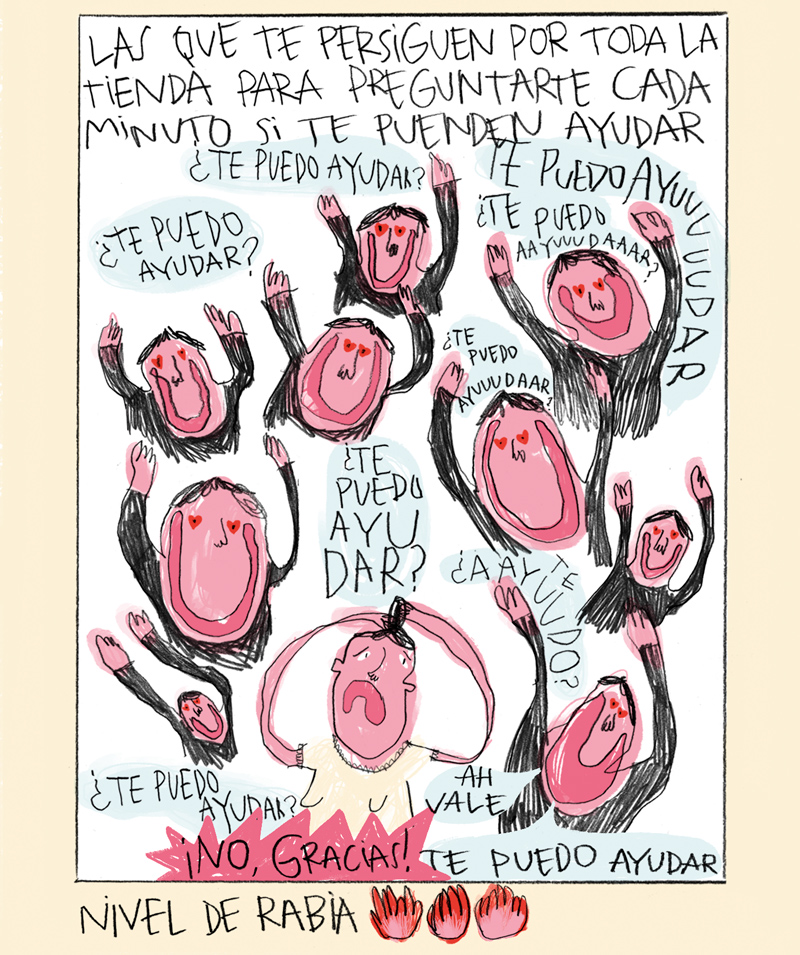 LAS QUE TE PERSIGUEN POR TODA LA
TIENDA PARA PREGUNTARTE CADA
MINUTO SI TE PUENDEN AYUDAR
¿TE PUEDO AYUDAR?
TE PUEDO AYUUUUUUDAR
¿TE PUEDO
AAYUUUDAAAR?
¿TE PUEDO
AYUDAR?
¿TE
PUEDO
AYUUUDAAR?
¿TE
PUEDO
AYU
DAR?
¿AAYUUDO?
TE
¿TE PUEDO
AYUDAR?
AH
VALE
¡NO, GRACIAS!
TE PUEDO AYUDAR
NIVEL DE RABIA